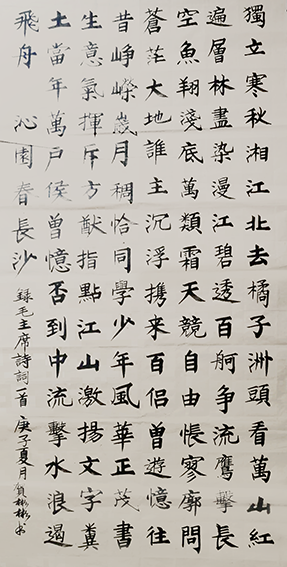 獨立寒秋湘江北去橘子洲頭看萬山紅
遍層林盡染漫江碧透百舸争流鷹擊長
空魚翔淺底萬類霜天競自由悵寥廓問
蒼茫大地誰主沉浮携来百侣曾遊憶往
昔崢嶸歲月稠恰同學少年風華正茂書
生意氣揮斥方猷指點江山激揚文字糞
土當年萬户侯曾憶否到中流擊水浪遏
飛舟 沁園春長沙 錄毛主席詩詞首 庚子夏月 彬彬书